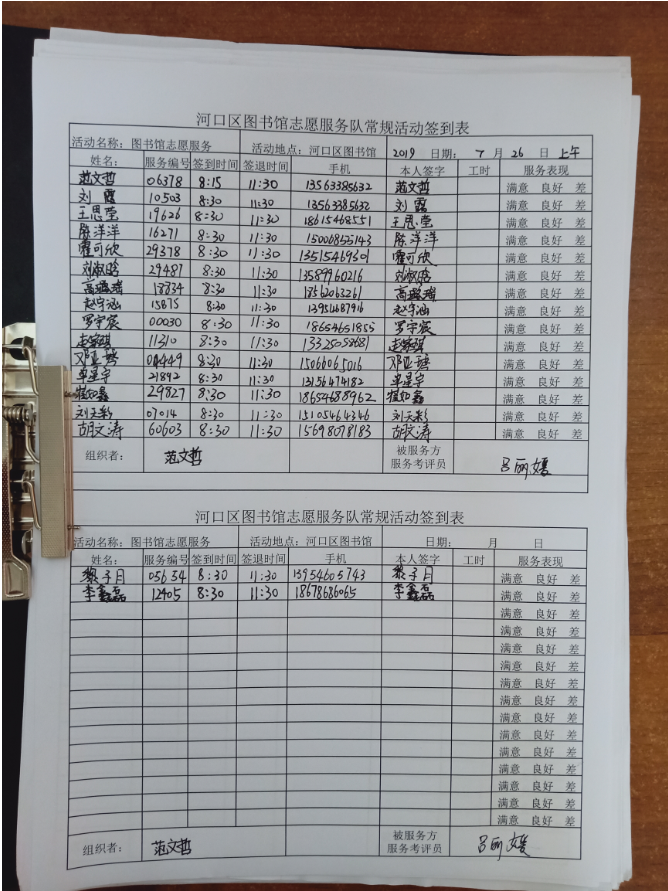 河口区图书馆志愿服务队常规活动签到表
活动名称：图书馆志愿服务 活动地点：河口区图书馆 2019 日期： 7 月 26 日 上午
姓名： 服务编号 签到时间 签退时间 手机 本人签字 工时 服务表现
范文哲 06378 8:15 11:30 13563385632 范文哲 满意 良好 差
刘露 10503 8:30 11:30 13563385632 刘露 满意 良好 差
王思莹 19626 8:30 11:30 18615468551 王思莹 满意 良好 差
陈洋洋 16271 8:30 11:30 15006855143 陈洋洋 满意 良好 差
霍可欣 29378 8:30 11:30 13515469301 霍可欣 满意 良好 差
刘淑晗 29487 8:30 11:30 13589960216 刘淑晗 满意 良好 差
18834 8:30 11:30 18562063261 满意 良好 差
赵宇涵 15875 8:30 11:30 13954687916 赵宇涵 满意 良好 差
罗宇宸 00030 8:30 11:30 18654651855 罗宇宸 满意 良好 差
11310 8:30 11:30 满意 良好 差
04449 8:30 11:30 15066065016 满意 良好 差
单星宇 21892 8:30 11:30 13156474182 单星宇 满意 良好 差
崔如鑫 29827 8:30 11:30 18654688962 崔如鑫 满意 良好 差
刘天彩 07014 8:30 11:30 15105464346 刘天彩 满意 良好 差
胡文涛 60603 8:30 11:30 15698078183 胡文涛 满意 良好 差
组织者： 范文哲 被服务方 吕丽媛
服务考评员
河口区图书馆志愿服务队常规活动签到表
活动名称：图书馆志愿服务 活动地点：河口区图书馆 日期： 月 日
姓名： 服务编号 签到时间 签退时间 手机 本人签字 工时 服务表现
黎子月 05654 8:30 11:30 13954605743 黎子月 满意 良好 差
李鑫磊 12405 8:30 11:30 18678686065 李鑫磊 满意 良好 差
满意 良好 差
满意 良好 差
满意 良好 差
满意 良好 差
满意 良好 差
满意 良好 差
满意 良好 差
满意 良好 差
满意 良好 差
满意 良好 差
满意 良好 差
满意 良好 差
满意 良好 差
组织者： 范文哲 被服务方 吕丽媛
服务考评员